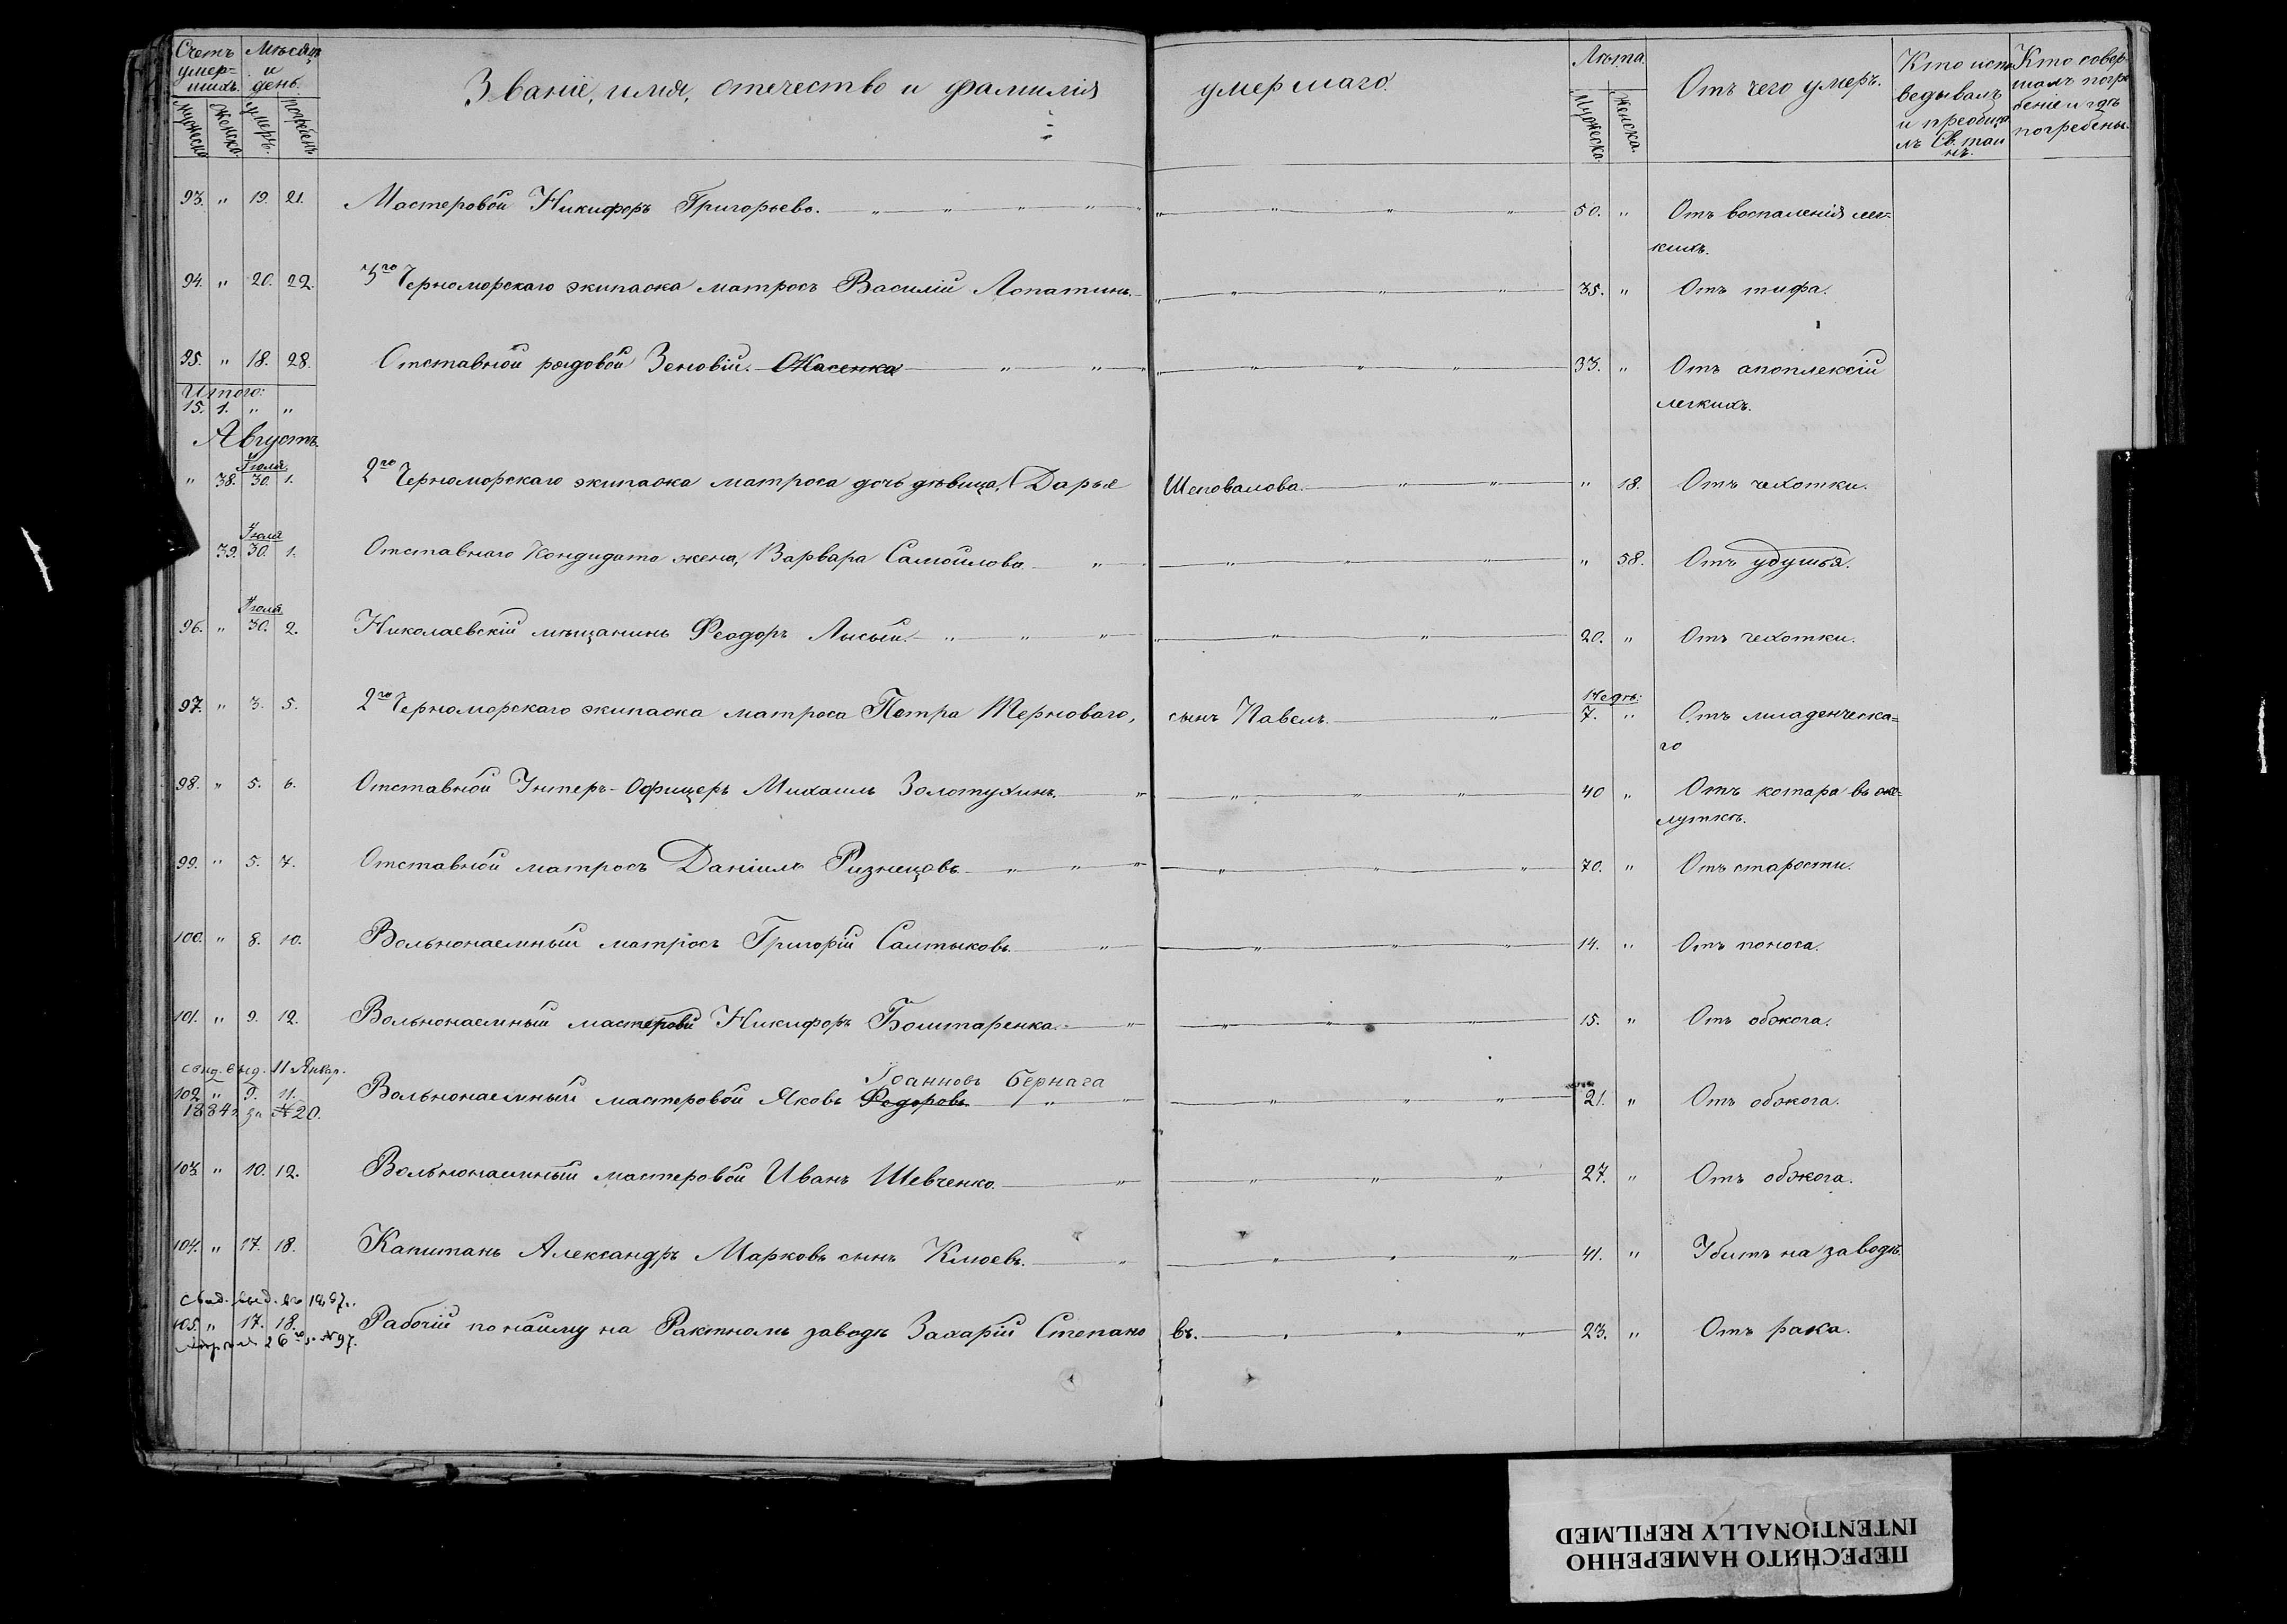 Счетъ умер=шихъ. Мѣсяцъ и день.
Званіе, имя, отечество и фамилія умершаго.
Лѣта.
Отъ чего умеръ.
Кто исповѣдывалъ и пріобщалъ Св. таинъ.
Кто совершалъ погребеніе и гдѣ погребены.
Мужеска. Женска. Умеръ. Погребенъ. Мужеска. Женска.
93. " 19. 21. Мастеровой Никифоръ Григорьево. 50. " Отъ воспаленія лег=
кихъ.
94. " 20. 22. Черноморскаго экипажа матросъ Василій Лопатинъ. 35. " Отъ тифа.
95. " 18. 28. Отставной рядовой Зеновій. 33. " Отъ апоплексіи
легкихъ.
Итого:
15. 1. " "
Августъ.
Іюля
" 38. 30. 1. 2го Черноморскаго экипажа матроса дочь дѣвица, Дарья Шеповалова. " 18. Отъ чехотки.
Іюля
39. 30. 1. Отставнаго Кондидата жена, Варвара Самойлова " 58. Отъ удушья.
Іюля
96. " 30. 2. Николаевскій мѣщанинъ Феодоръ Лысый. 20. " Отъ чехотки.
Недѣ:
97. " 3. 5. 2го Черноморскаго экипажа матроса Петра Терноваго, сынъ Павелъ. 7. " Отъ младенческа=
го
98. " 5. 6. Отставной Унтеръ-Офицеръ Михаилъ Золотухинъ. 40 " Отъ катара въ же=
лудкѣ.
99. " 5. 7. Отставной матросъ Даніилъ Ризнецовъ 70. " Отъ старости.
100. " 8. 10. Вольнонаемный матросъ Григорій Салтыковъ 14. " Отъ поноса.
101. " 9. 12. Вольнонаемный мастеровой Никифоръ Болтаренка. 15. " Отъ обжога.
свид. выд. 11 Январ.
Іоанновъ Бернага
102. " 9. 11. Вольнонаемный мастеровой Яковъ Федоровъ 21. " Отъ обжога.
1884 г. за №20.
103. " 10. 12. Вольнонаемный мастеровой Иванъ Шевченко. 27. " Отъ обжога.
104. " 17. 18. Капитанъ Александръ Марковъ сынъ Клюевъ. 41. " Убитъ на заводѣ.
Свид. выд. въ 1897.
105. " 17. 18. Рабочій по найму на Ракетномъ заводѣ Захарій Степано въ. 23. " Отъ рака.
Апрѣля 26 № 97.
ПЕРЕСНЯТО НАМЕРЕННО
INTENTIONALLY REFILMED